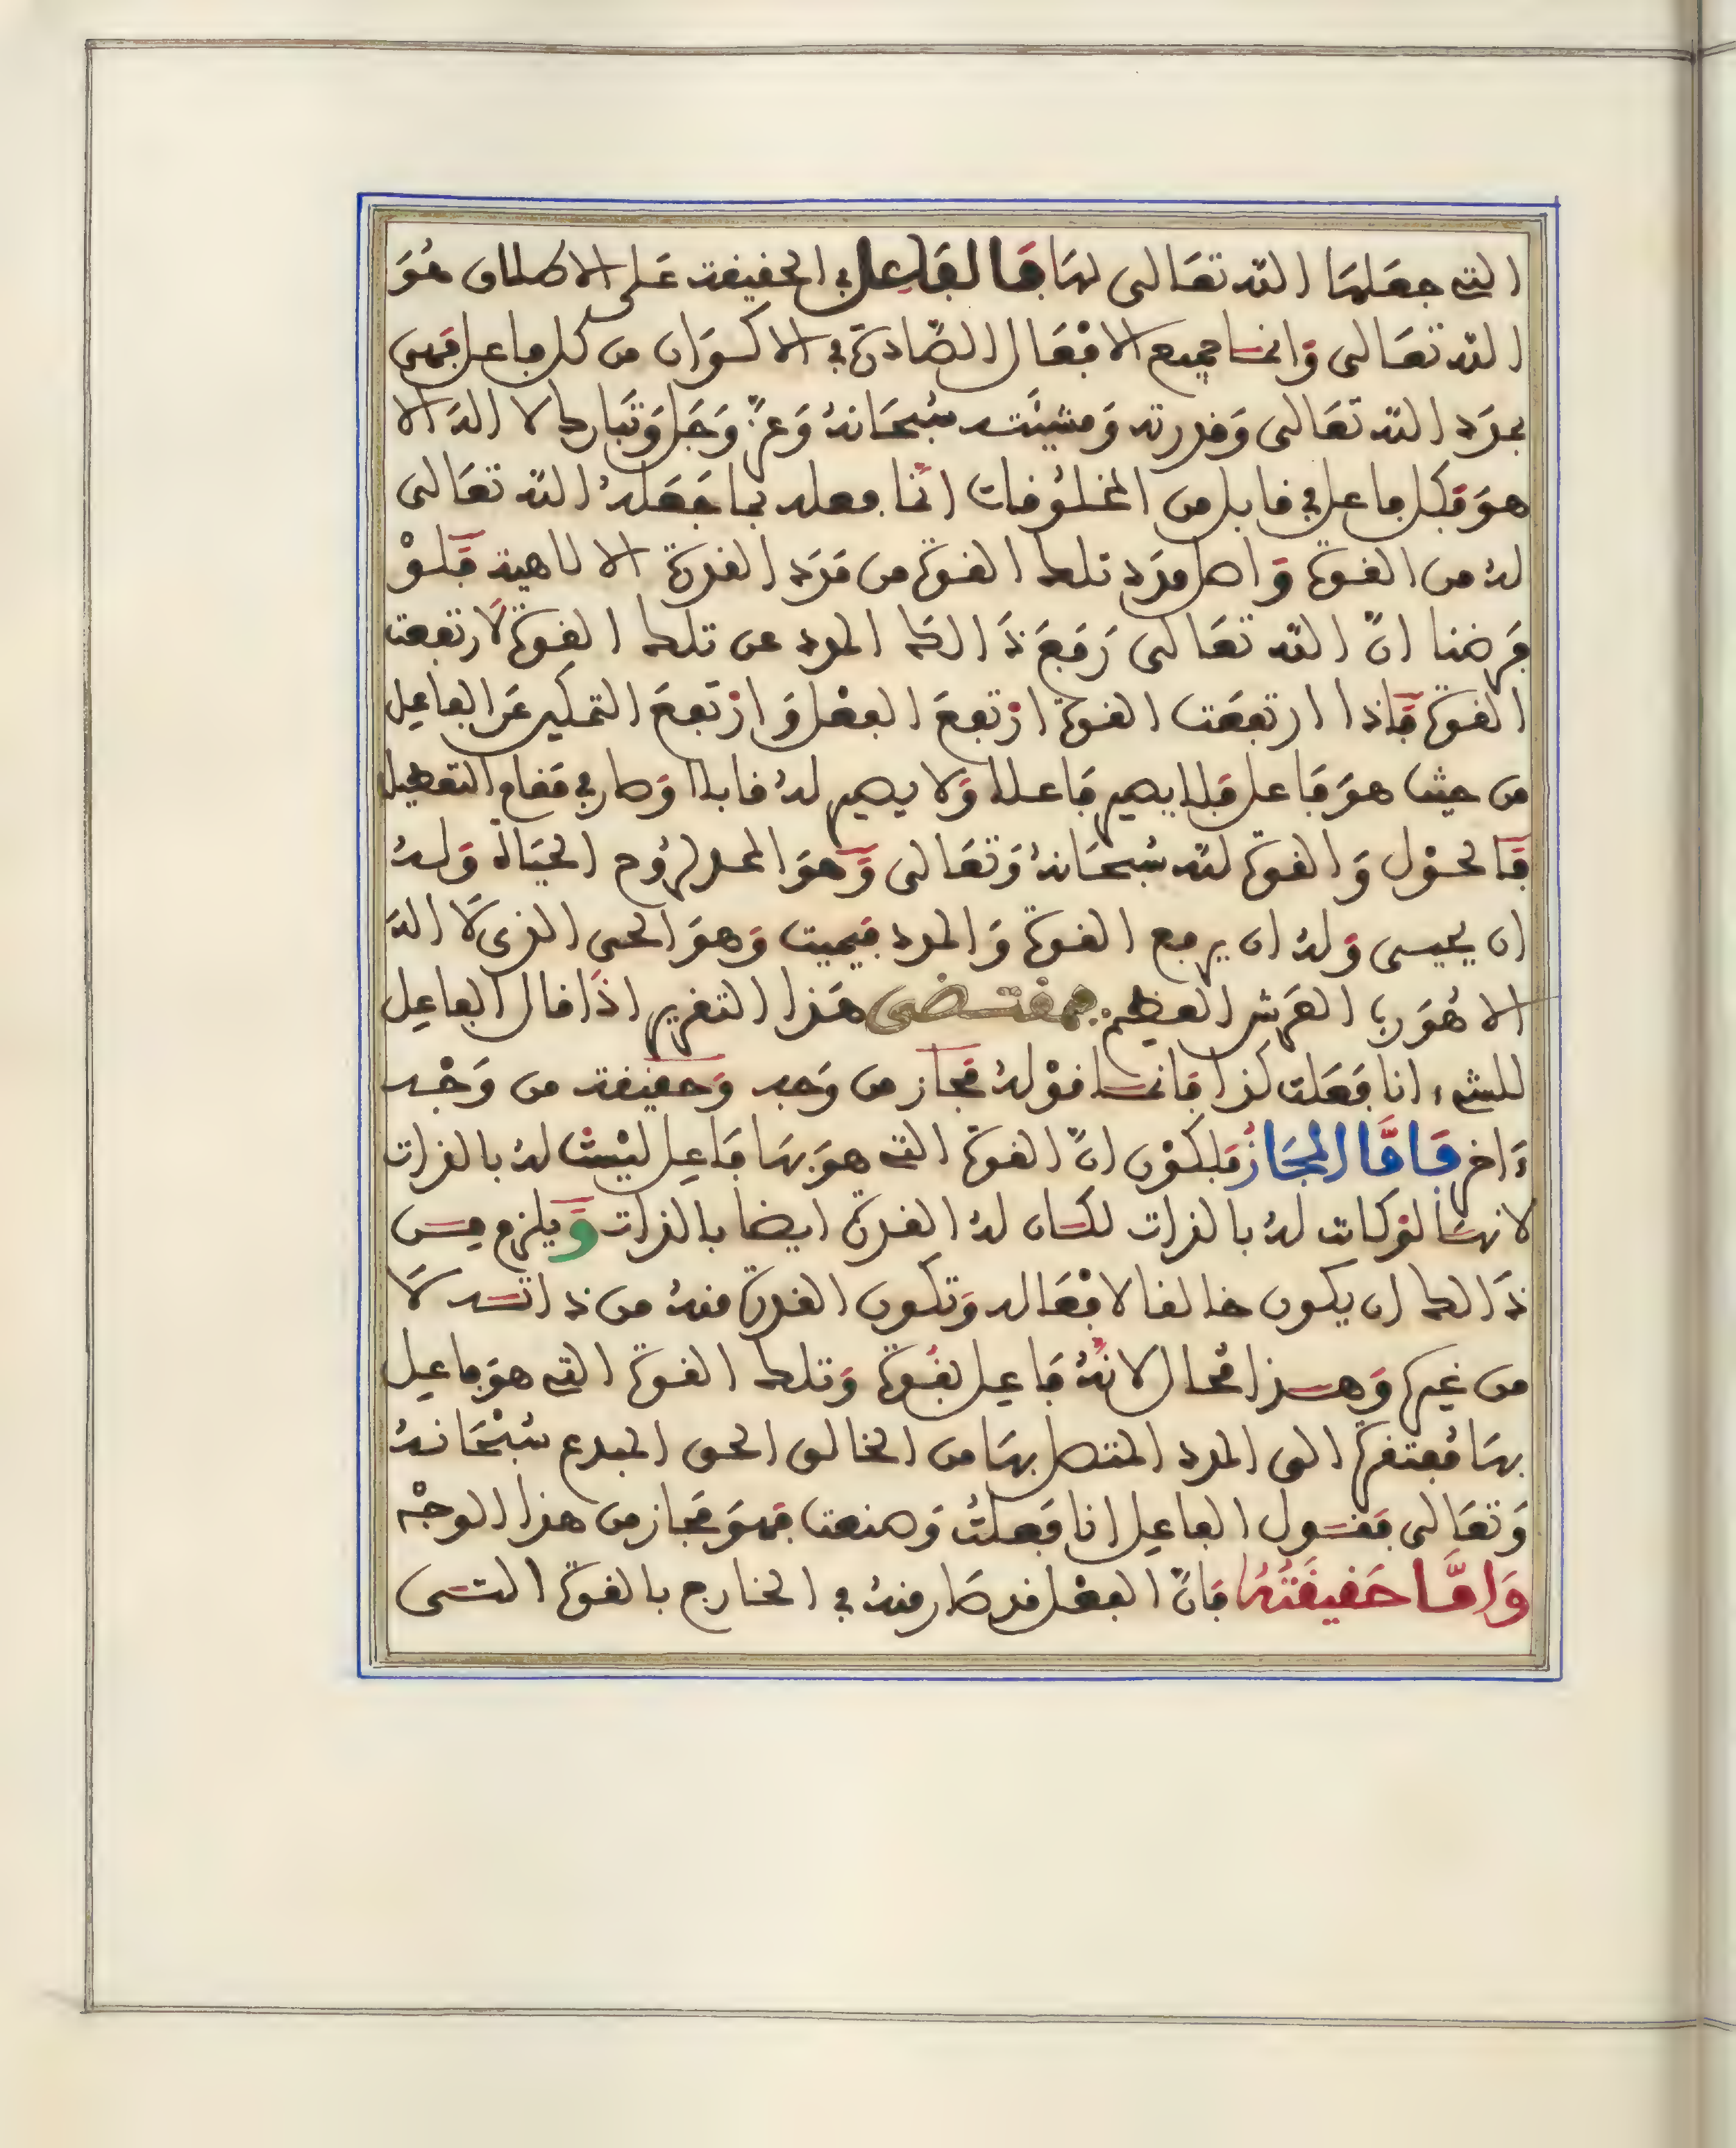 التي جعلها الله تعالى لها فالفاعل في الحقيقة على الاطلاق هُوَ
الله تعالى وَانما جميع الافْعَال الصَّادرَة في الاكوَان من كل فاعل فهى
بمدَد الله تعَالى وَقدرته وَمشيئته سُبحَانهُ وَعزَّ وَجَل وَتبَارك لا الهَ الا
هوَ فَكل فاعل في قابل من المخلوُقات انّما فعله بما جَعَلهُ الله تعَالى
لهُ من القوة وَاصل مدَد تلك القوة من مَدَد القدرَة الالاهية فَلوْ
فَرضنا انّ الله تعَالى رَفعَ ذَالك المدد عن تلك القوة لَارتفعت
القوة فَاذا ارتفعَت القوة ارْتفعَ الفعْل وَارْتفعَ التمكين عَن الفاعِل
من حيث هوَ فَاعل فَلا يصير فَاعلا وَلا يصير لهُ قابلا وَصار في مَقام التعطيل
فَالحوْل وَالقوة لله سُبحَانهُ وَتعَالى وَهوَ الممد لرُوح الحيَاة وَلهُ
ان يحيى وَلهُ ان يرفع القوة وَالمدد فيميت وَهوَ الحى الذى لَا الهَ
الا هُوَ رب العَرش العظيم بمقتضى هَذا التقرير اذَا قال الفاعِل
للشيء انا فَعَلت كذا فَانما قوْلهُ مَجَاز من وَجه وَحقيقة من وَجْه
ءَاخر فَامَّا المجَازُ فَلكوْن انّ القوة التي هوَ بهَا فَاعِل ليْستْ لهُ بالذات
لانهَا لوْ كانت لهُ بالذات لكان لهُ القدرَة ايضا بالذات وَيلزم من
ذَالك ان يكون خالقا لافْعَاله وَتكون القدرَة منهُ من ذاته لَا
من غيره وَهذا مُحال لانّهُ فَاعِل بقُوة وَتلك القوة التي هوَ فاعِل
بهَا مُفتقرة الى المدد المتصل بهَا من الخالق الحق المبدع سُبْحَانهُ
وَتعَالى فقول الفاعِل انا فَعَلتُ وَصنعت فهوَ مَجاز من هذا الوجْه
وَامَّا حَقيقَتُهُ فَانّ الفعْل قد صَار منهُ في الخارج بالقوة التى